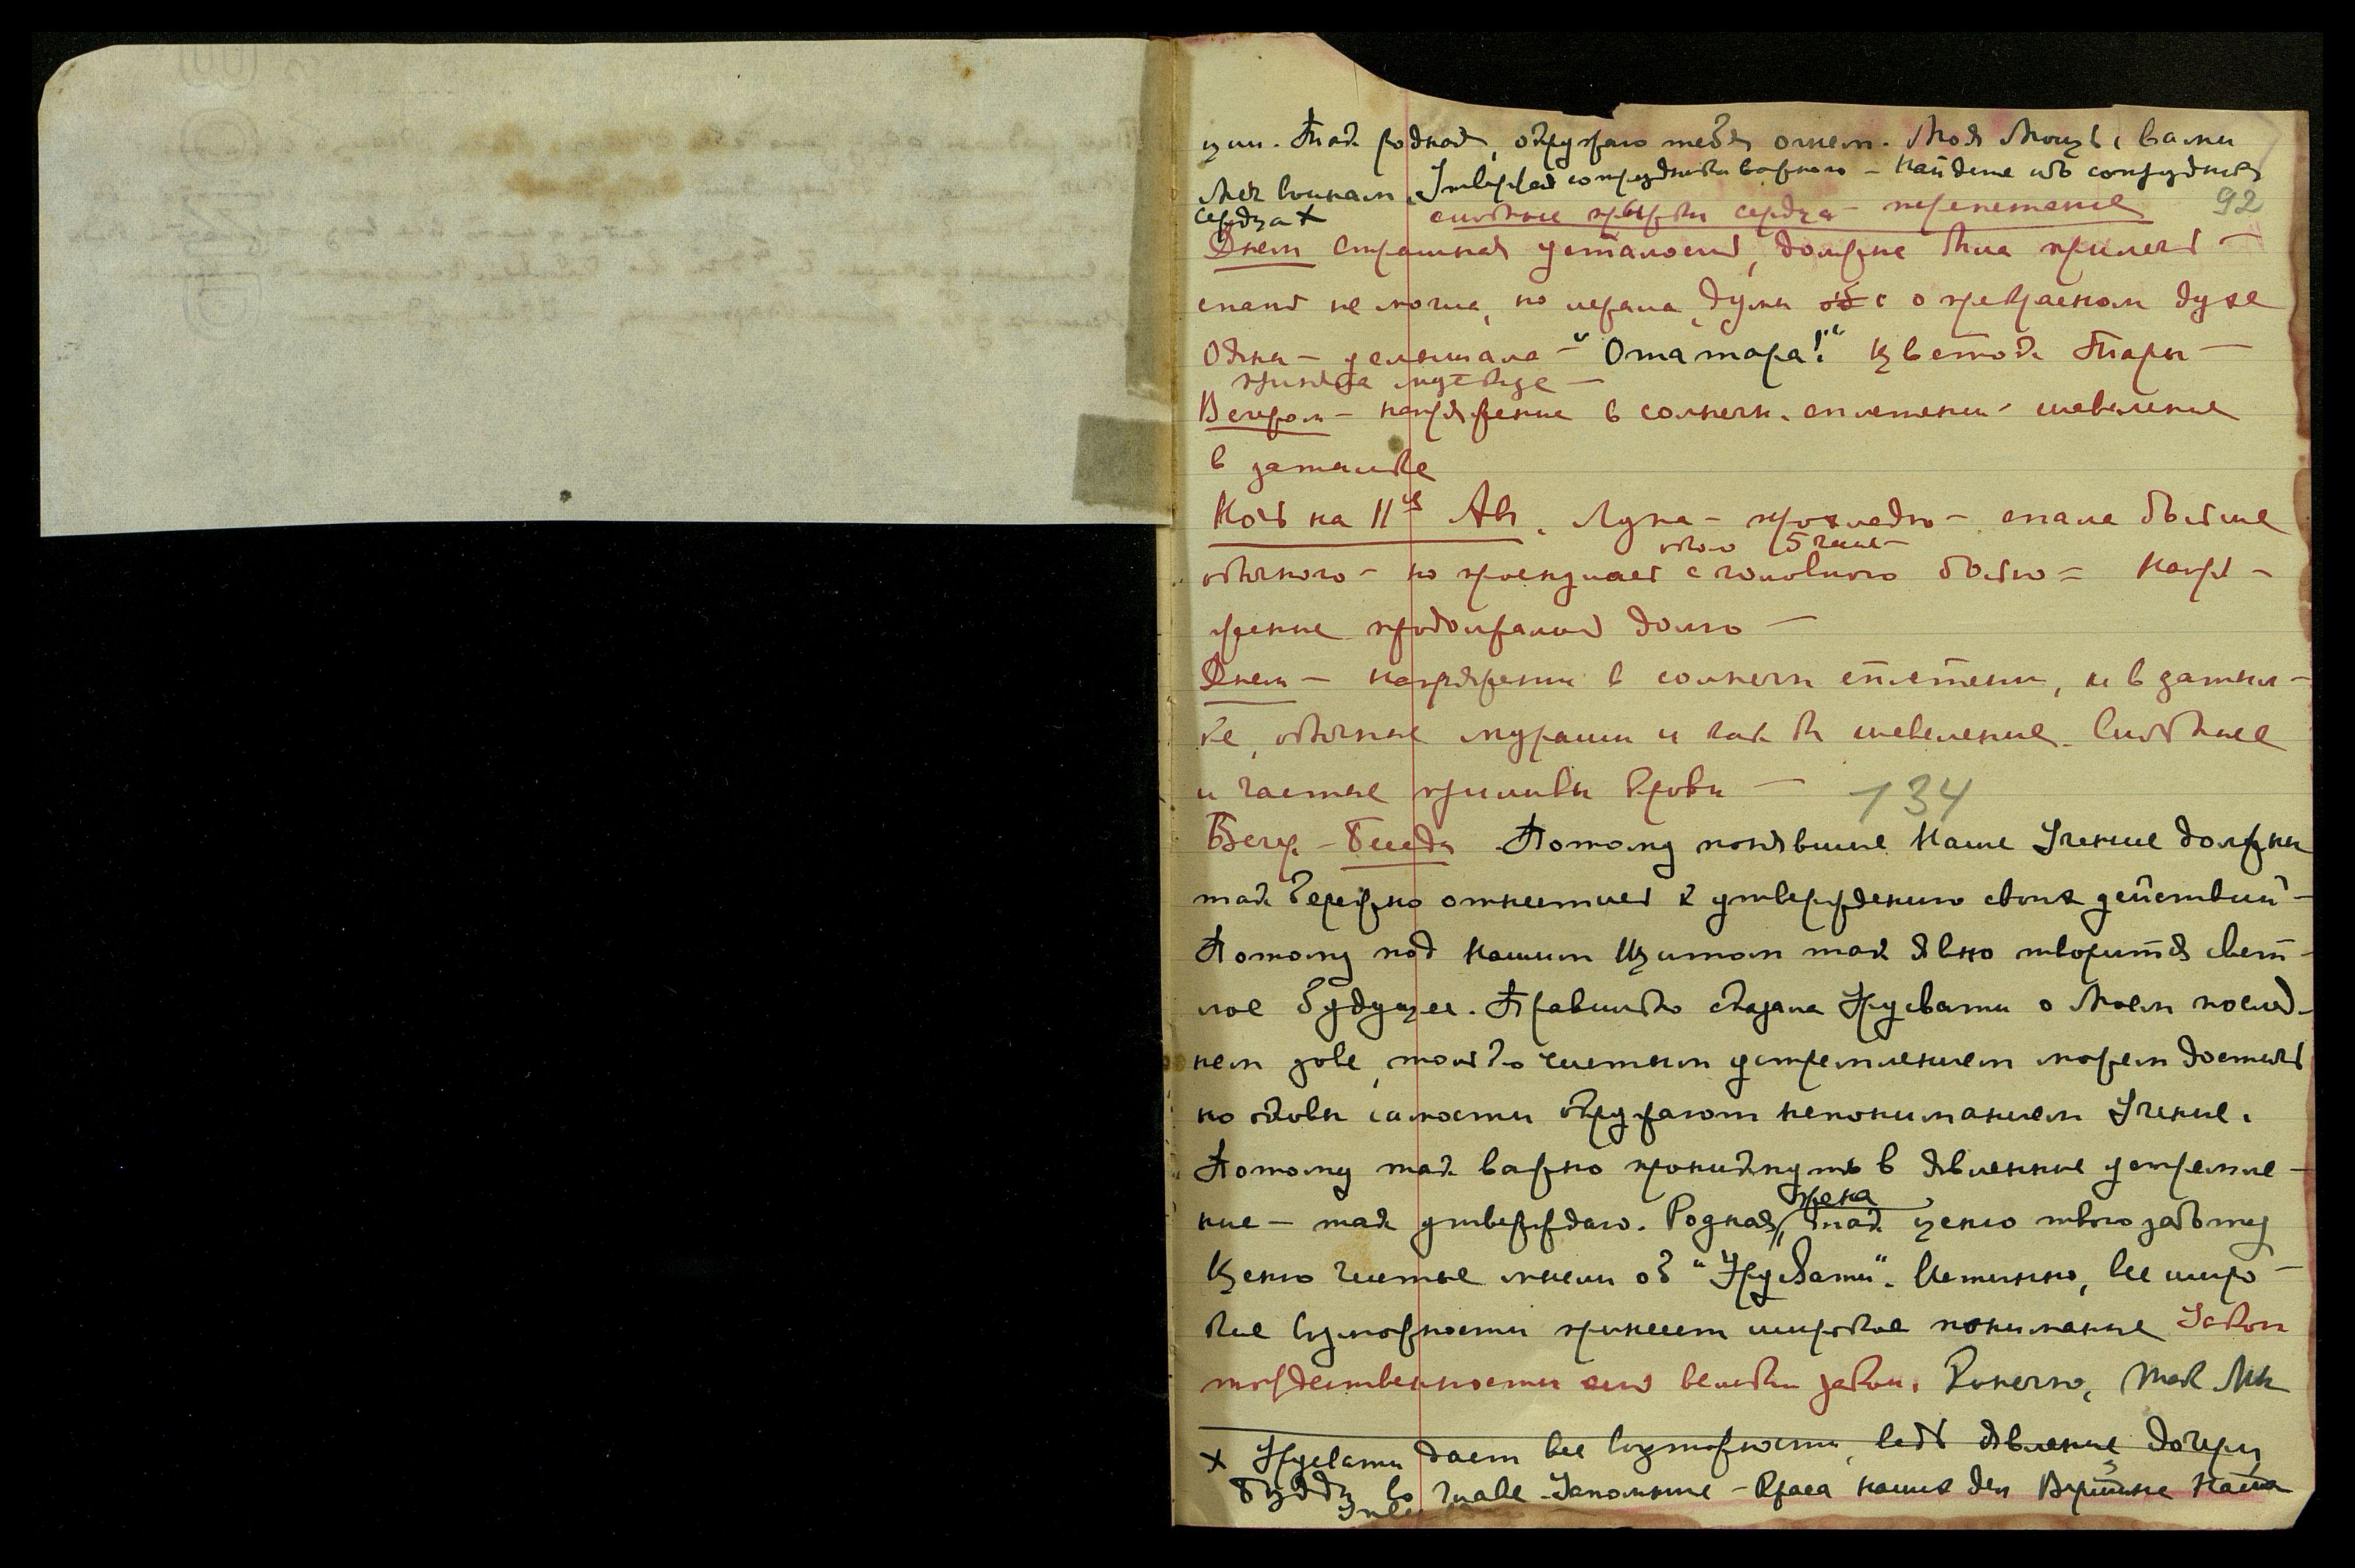 ции. Так родная, окружаю тебя огнем. Моя Мощь с вами
Меч воинам. Утверждая сотрудника важного – найдете ибо сотрудник
сердца х сильные взрывы сердца – перенетение 92
Днем страшная усталость, должна была прилечь –
спать не могла, но лежала, думы о прекрасном духе
Одна – услышала – "Отатара!" Цветок Тары –
Вечером – напряжение в солнечн. сплетении – шевеление
в затылке
Ночь на 11ое Авг. Луна – прохладно – спала больше
около 5 часов –
обычного – но проснулась с головною болью = Напря –
жение продолжалось долго –
Днем – напряжение в солнечн сплетении, и в затыл –
ке, обычные мурашки и как бы шевеление. Сильные
и частые приливы крови – 134
Вечер – Беседа Потому понявшие Наше Учение должны
так бережно отнестись к утверждению своих действий –
Потому под Нашим Щитом так явно творится свет –
лое будущее. Правильно сказала Урусвати о Моем послед –
нем зове, только чистым устремлением можем достичь
но оковы самости окружают непониманием Учение.
Потому так важно проникнуть в явленные устремле –
жена
ние – так утверждаю. Родная, так ценю твою заботу
Ценю чистые мысли об "Урусвати". Истинно, все широ –
кие возможности принесет широкое понимание Закон
тождественности есть великий закон. Конечно, так Мы
х Урусвати дает все возможности, ведь явление дочери
Будды во главе Запомните – Краса наших дел Вершина Наша